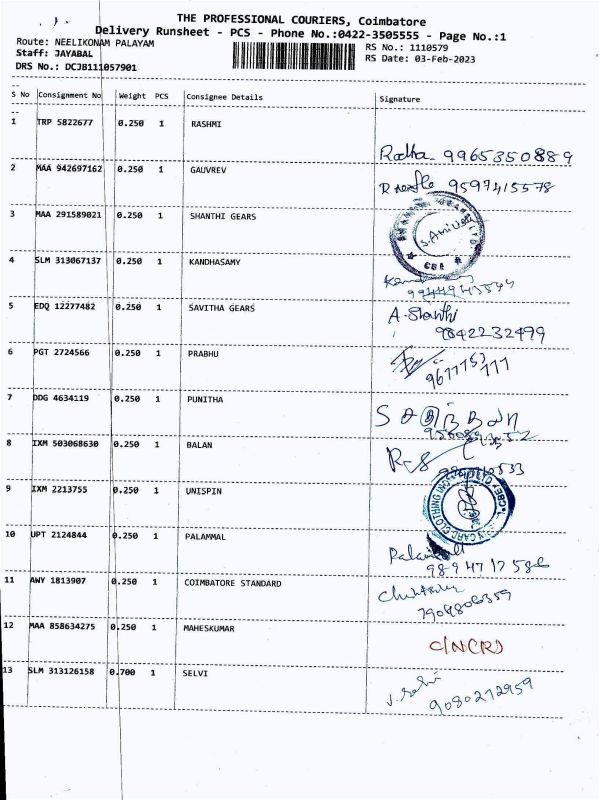 THE PROFESSIONAL COURIERS, Coimbatore
Delivery Runsheet - PCS - Phone No.:0422-3505555 - Page No.:1
Route: NEELIKONAM PALAYAM
RS No.: 1110579
Staff: JAYABAL
RS Date: 03-Feb-2023
DRS No.: DCJB111057901
S No Consignment No Weight PCS Consignee Details Signature
1 TRP 5822677 0.250 1 RASHMI
Radha 9965350889
2 MAA 942697162 0.250 1 GAUVREV
9597415578
3 MAA 291589021 0.250 1 SHANTHI GEARS
CBE
4 SLM 313067137 0.250 1 KANDHASAMY
5 EDQ 12277482 0.250 1 SAVITHA GEARS
A. Shanthi
9842232499
6 PGT 2724566 0.250 1 PRABHU
7 DDG 4634119 0.250 1 PUNITHA
8 IXM 503068630 0.250 1 BALAN
9 IXM 2213755 0.250 1 UNISPIN
10 UPT 2124844 0.250 1 PALAMMAL
11 AWY 1813907 0.250 1 COIMBATORE STANDARD
7904806359
12 MAA 858634275 0.250 1 MAHESKUMAR
C/NCRD
13 SLM 313126158 0.700 1 SELVI
J. Selvi
9080272959